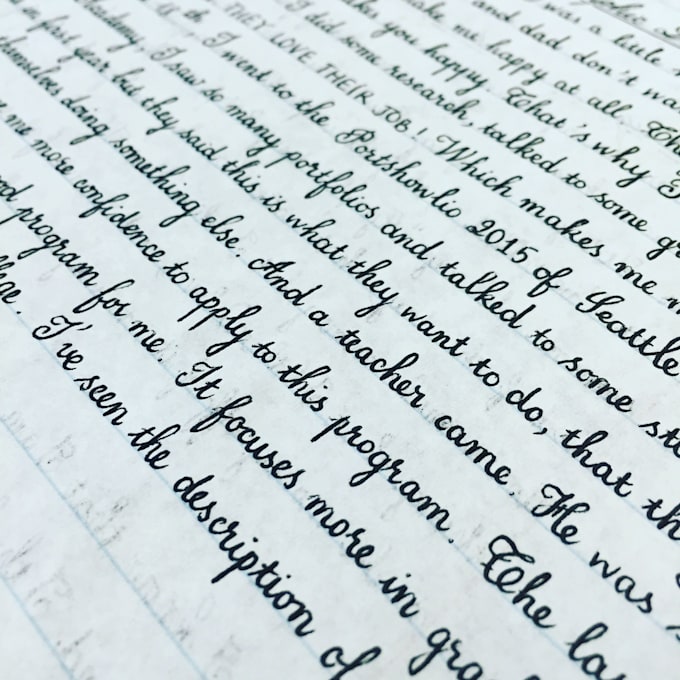 was a little
and dad don't wa
make me happy at all. Th
you happy. That's why I
I did some research, talked to some gr
THEY LOVE THEIR JOB! Which makes me m
th I went to the Portshowlio 2015 of Seattle
I saw so many portfolios and talked to some st
in first year but they said this is what they want to do, that th
themselves doing something else. And a teacher came. He was s
me more confidence to apply to this program. The la
program for me. It focuses more in gra
I've seen the description of